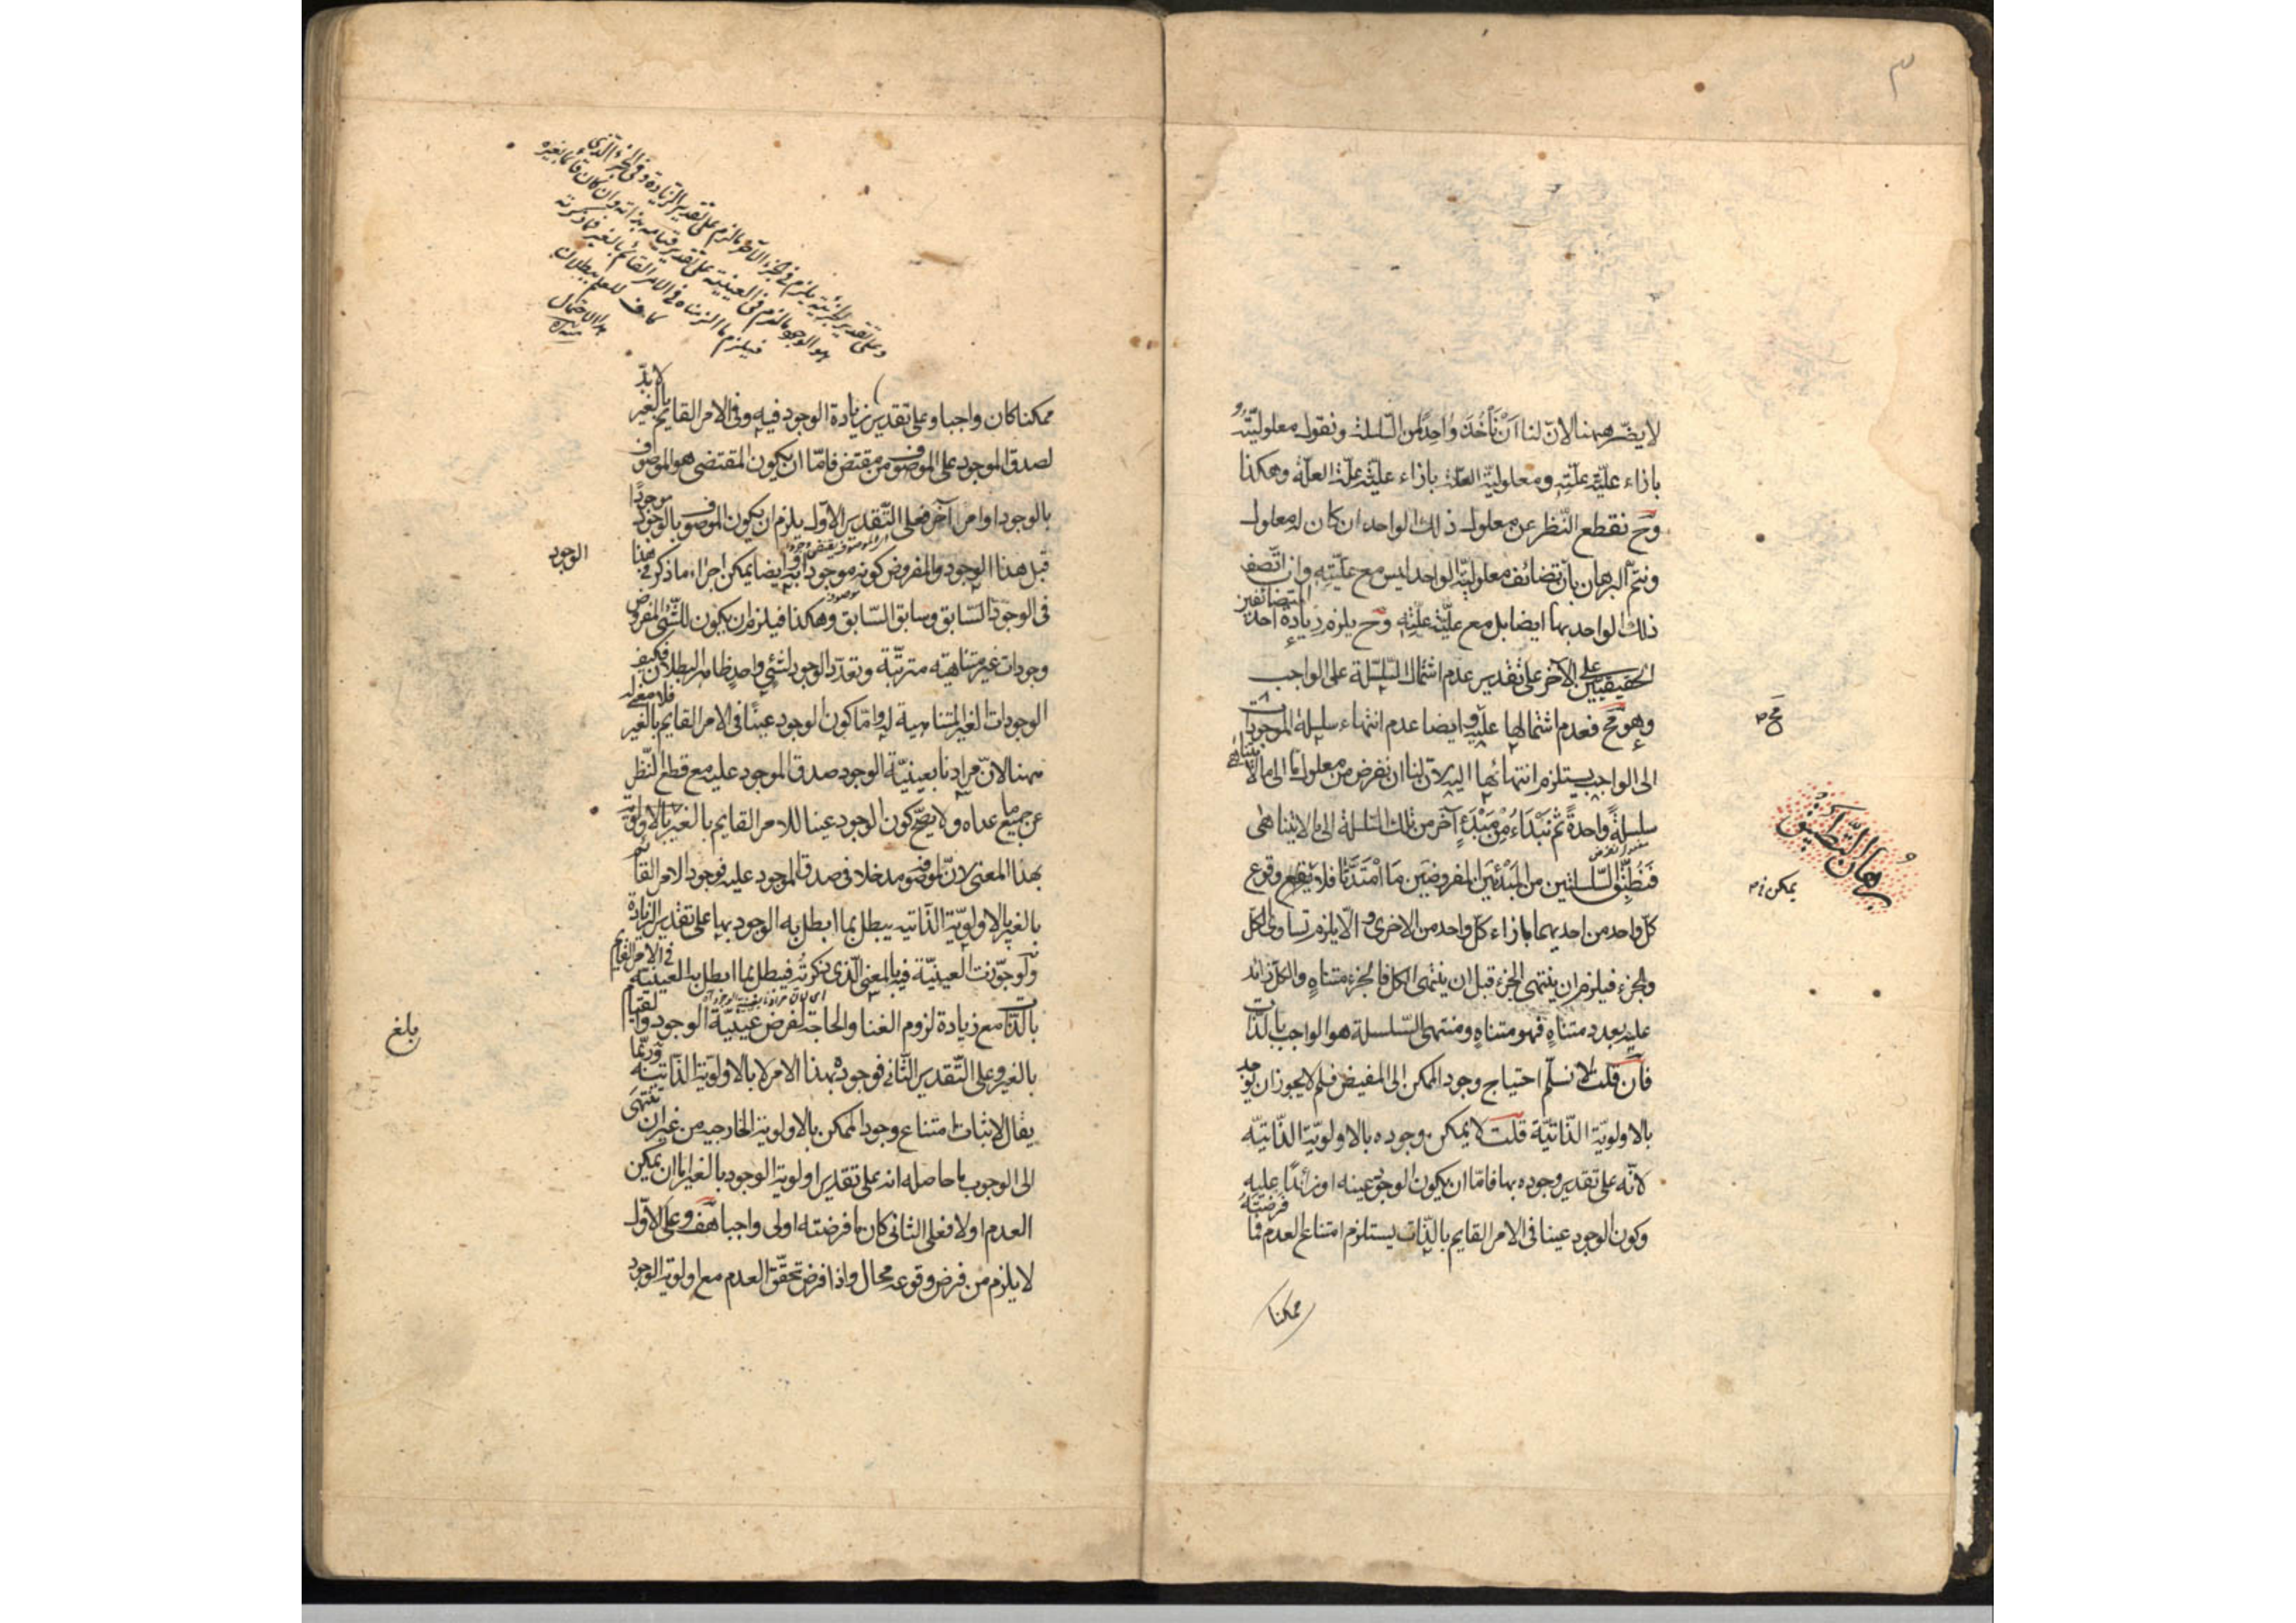 ٣
لا يضر ههنا لان لنا ان نأخذ واحدا من السلسلة ونقول معلوليته
بازاء علية علته ومعلولية العلة بازاء علية علة العلة وهكذا
وح نقطع النظر عن معلول ذلك الواحد ان كان له معلول
ونتم البرهان بان تضائف معلولية الواحد ليس مع عليته وان اتصف
ذلك الواحد بها ايضا بل مع علية علته وح يلزم زيادة احد المتضائفين
الحقيقيين على الآخر على تقدير عدم اشتمال السلسلة على الواجب
وهو مح فعدم اشتمالها عليه وايضا عدم انتهاء سلسلة الموجودات
مح
الى الواجب يستلزم انتهائها اليه لان لنا ان نفرض من معلول ما الى ما لا يتناهى
برهان التطبيق
سلسلة واحدة ثم نبتداء من مبتدء آخر من تلك السلسلة الى ما لا يتناهى
فنطبق السلسلتين من المبتدئين المفروضين ما امتدتا فلا يقع وقوع
يمكن
كل واحد من احديهما بازاء كل واحد من الاخرى والا يلزم تساوى الكل
والجزء فيلزم ان ينتهى الجزء قبل ان ينتهى الكل فالجزء متناه والكل زائد
عليه بعدد متناه فهو متناه ومنتهى السلسلة هو الواجب بالذات
فان قلت لا نسلم احتياج وجود الممكن الى المفيض فلم لا يجوز ان يوجد
بالاولوية الذاتية قلت لا يمكن وجوده بالاولوية الذاتية
لانه على تقدير وجوده بها فاما ان يكون الوجود عينه او زائدا عليه
وكون الوجود عينا فى الامر القايم بالذات يستلزم امتناع العدم فما فرضته
ممكنا
وعلى تقدير الجزئية يلزم فى الجزء الآخر ما لزم على تقدير الزيادة وفى الجزء الذى
هو الوجود ما لزم فى العينية على تقدير قيامه بذاته وان كان قائما بغيره
فيلزم ما الزمناه فى الامر القائم بالغير فما ذكرته
كاف للعلم ببطلان
هذا الاحتمال
منه
ممكنا كان واجبا وعلى تقدير زيادة الوجود فيه وفى الامر القايم بالغير لابد
لصدق الموجود على الموصوف من مقتض فاما ان يكون المقتضى هو الموصوف
بالوجود او امر آخر فعلى التقدير الاول يلزم ان يكون الموصوف بالوجود موجودا
قبل هذا الوجود والمفروض كونه موجودا به وايضا يمكن اجراء ما ذكر فى هذا
الوجود
فى الوجود السابق وسابق السابق وهكذا فيلزم ان يكون للشىء المفروض
وجودات غير متناهية مترتبة وتعدد الوجود لشىء واحد ظاهر البطلان فكيف
الوجودات الغير المتناهية له واما كون الوجود عينا فى الامر القايم بالغير فلا معنى له
ههنا لان مرادنا بعينية الوجود صدق الموجود عليه مع قطع النظر
عن جميع ما عداه ولا يصح كون الوجود عينا للامر القايم بالغير بالاولوية
بهذا المعنى لان للموضوع مدخلا فى صدق الموجود عليه فوجود الامر القائم
بالغير بالاولوية الذاتية يبطل بما ابطل به الوجود بها على تقدير الزيادة
ولو جوزت العينية فيه بالمعنى الذى ذكرته فيبطل بما ابطل به العينية فى الامر القايم
بالذات مع زيادة لزوم الغنا والحاجة لفرض عينية الوجود والقيام
بلغ
بالغير وعلى التقدير الثانى فوجوده بهذا الامر لا بالاولوية الذاتية وربما
يقال لاثبات امتناع وجود الممكن بالاولوية الخارجية من غير ان ينتهى
الى الوجوب ما حاصله انه على تقدير اولوية الوجود بالغير اما ان يمكن
العدم اولا فعلى الثانى كان ما فرضته اولى واجبا هف وعلى الاول
لا يلزم من فرض وقوعه محال واذا فرض تحقق العدم مع اولوية الوجود